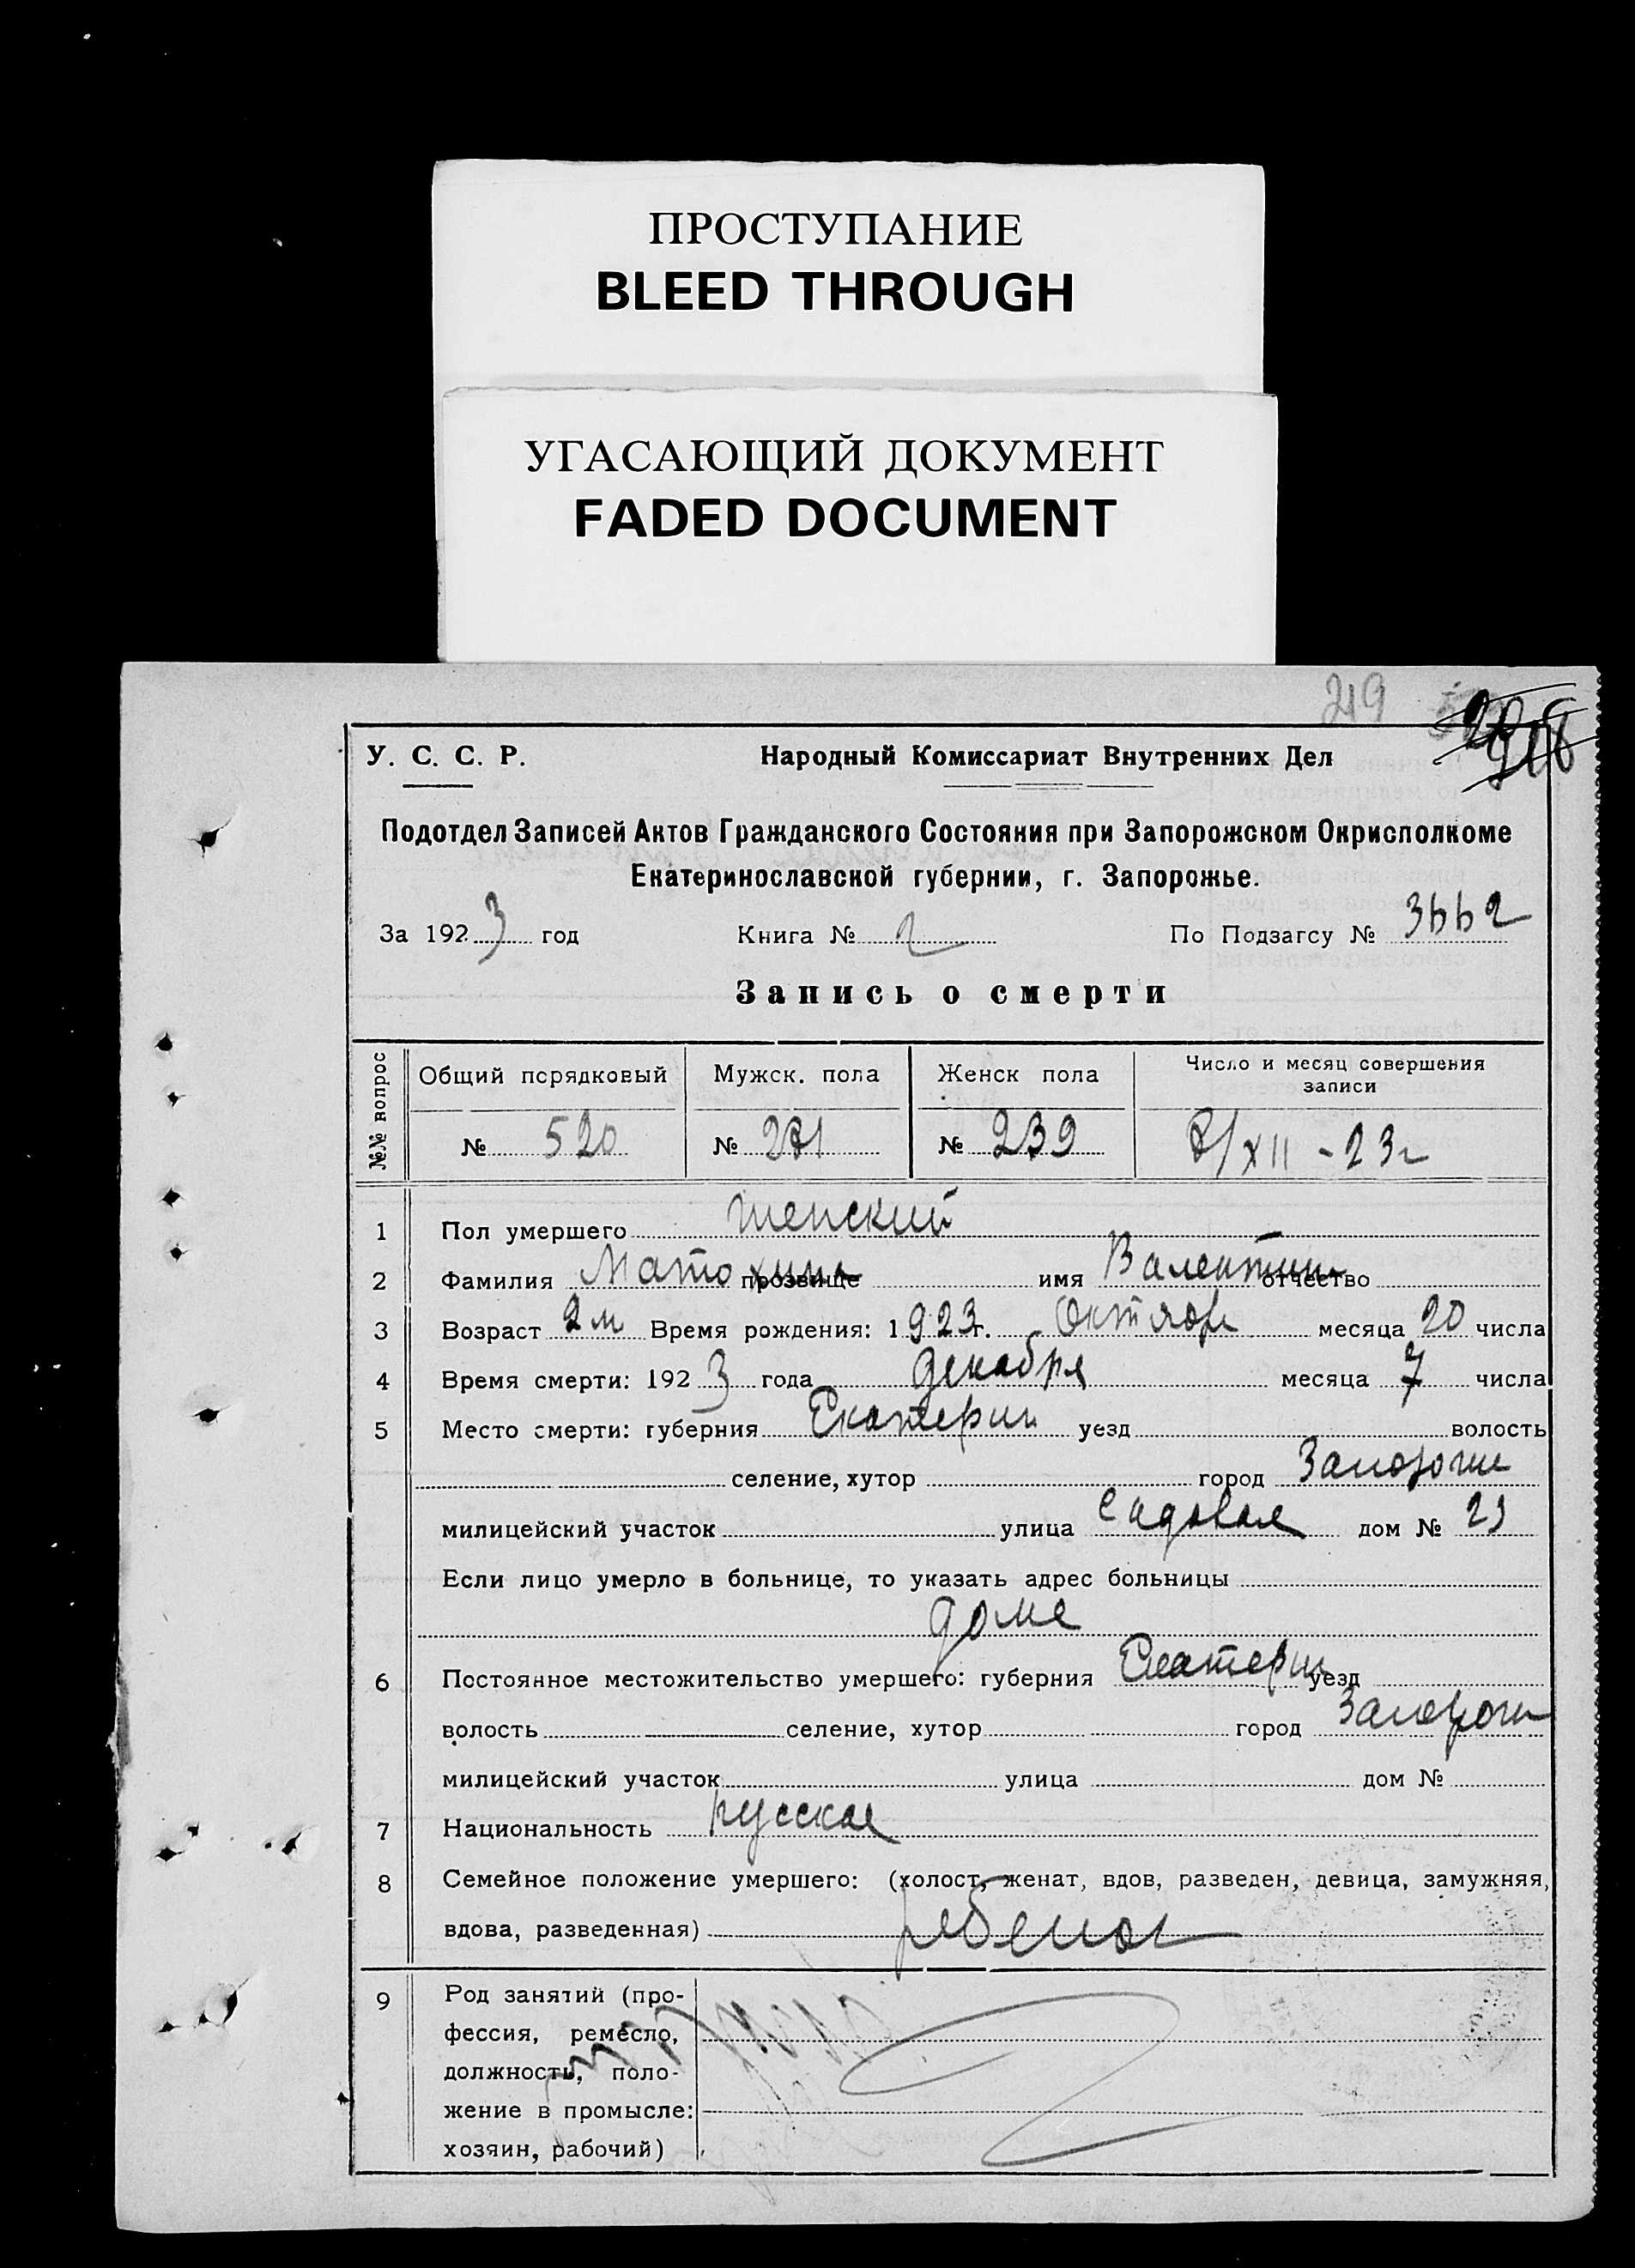 ПРОСТУПАНИЕ
BLEED THROUGH
УГАСАЮЩИЙ ДОКУМЕНТ
FADED DOCUMENT
219
У. С. С. Р. Народный Комиссариат Внутренних Дел
Подотдел Записей Актов Гражданского Состояния при Запорожском Окрисполкоме
Екатеринославской губернии, г. Запорожье.
За 1923 год Книга № 2 По Подзагсу № 3662
Запись о смерти
№№ вопрос Общий порядковый Мужск. пола Женск пола Число и месяц совершения
записи
№ 520 № № 239 8/XII - 23 г
1 Пол умершего женский
2 Фамилия Матохина прозвище имя Валентин отчество
3 Возраст 2 м Время рождения: 1923 г. Октябр месяца 20 числа
4 Время смерти: 1923 года декабря месяца 7 числа
5 Место смерти: губерния Екатерин уезд волость
селение, хутор город Запорожье
милицейский участок улица Садовая дом № 23
Если лицо умерло в больнице, то указать адрес больницы
доме
6 Постоянное местожительство умершего: губерния Екатерин уезд
волость селение, хутор город Запорож
милицейский участок улица дом №
7 Национальность русская
8 Семейное положение умершего: (холост, женат, вдов, разведен, девица, замужняя,
вдова, разведенная) ребенок
9 Род занятий (про-
фессия, ремесло,
должность, поло-
жение в промысле:
хозяин, рабочий)